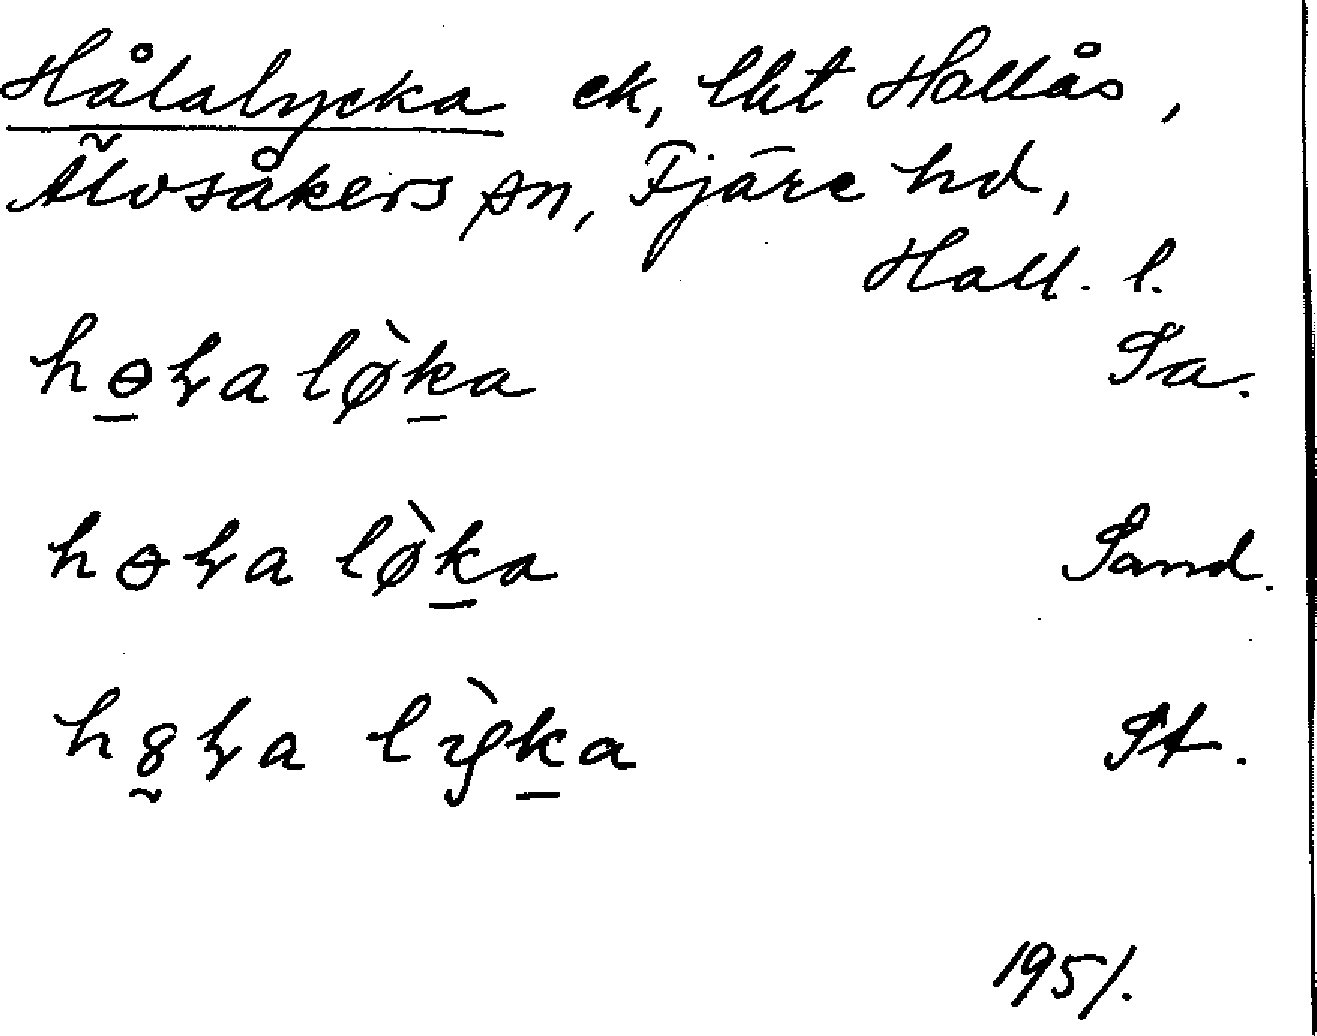 Hålalycka ck, lht Hallås,
Älvsåkers sn, Fjäre hd,
Hall. l.
hɵⱡa lø̀ka Sa.
hɵⱡa lø̀ka Sand.
h8ⱡa lỳka St.
1951.